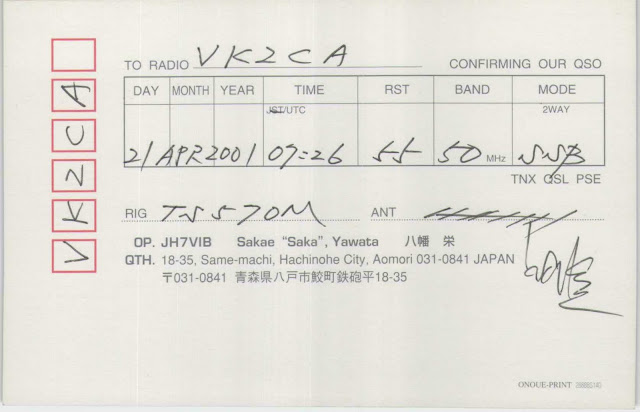 TO RADIO VK2CA CONFIRMING OUR QSO
DAY MONTH YEAR TIME RST BAND MODE
JST/UTC 2WAY
21 APR 2001 07:26 55 50 MHz SSB
TNX QSL PSE
RIG TS570M ANT
OP. JH7VIB Sakae "Saka", Yawata 八幡 栄
QTH. 18-35, Same-machi, Hachinohe City, Aomori 031-0841 JAPAN
〒031-0841 青森県八戸市鮫町鉄砲平18-35
ONOUE-PRINT
VK2CA